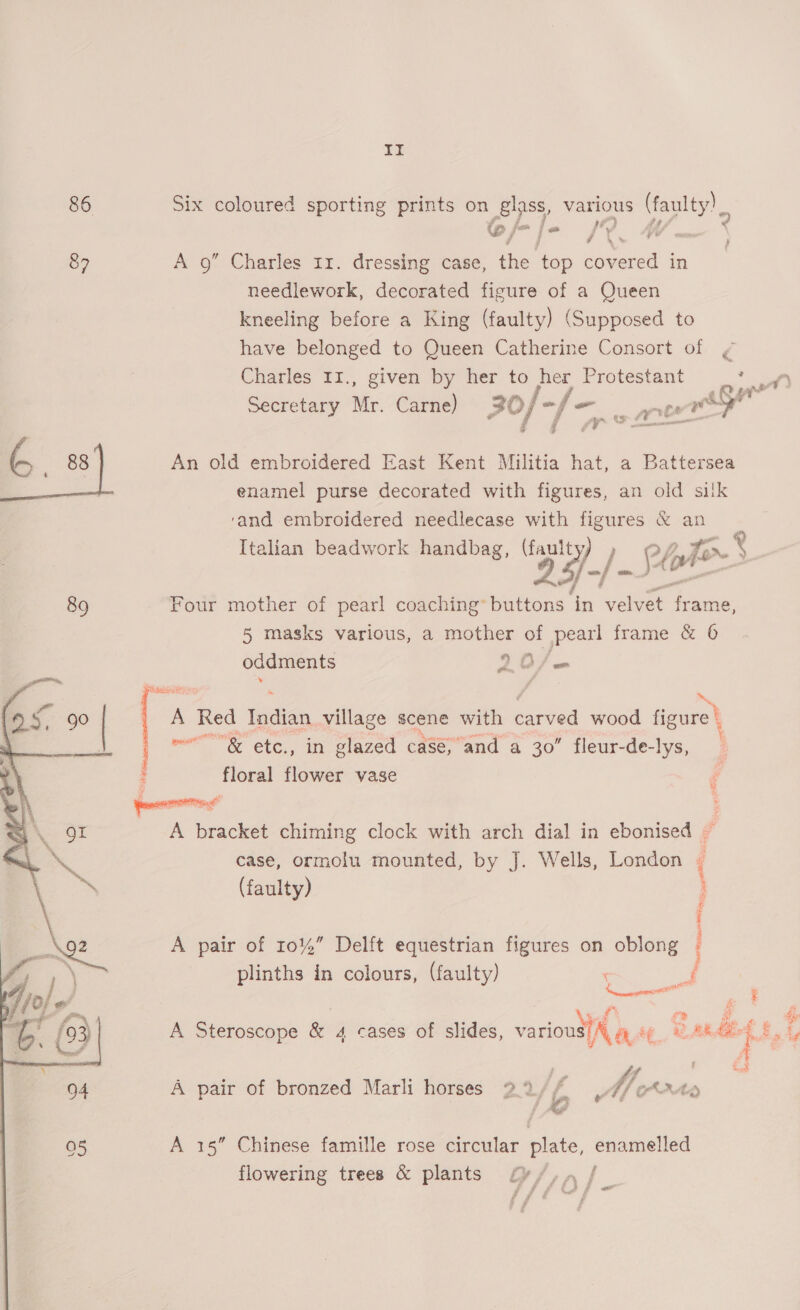 11
86 Six coloured sporting prints on glass, various (faulty)
6/-/-
87 A 9" Charles 11. dressing case, the top covered in
needlework, decorated figure of a Queen
kneeling before a King (faulty) (Supposed to
have belonged to Queen Catherine Consort of
Charles 11., given by her to her Protestant
Secretary Mr. Carne) 30/-/-
6. 88 An old embroidered East Kent Militia hat, a Battersea
enamel purse decorated with figures, an old silk
and embroidered needlecase with figures & an
Italian beadwork handbag, (faulty)
25/-/-
89 Four mother of pearl coaching buttons in velvet frame,
5 masks various, a mother of pearl frame & 6
oddments 20/-
25. 90 A Red Indian village scene with carved wood figure
& etc., in glazed case, and a 30" fleur-de-lys,
floral flower vase
91 A bracket chiming clock with arch dial in ebonised
case, ormolu mounted, by J. Wells, London
(faulty)
92 A pair of 10½" Delft equestrian figures on oblong
plinths in colours, (faulty)
6. 93 A Steroscope & 4 cases of slides, various
94 A pair of bronzed Marli horses 22/6
95 A 15" Chinese famille rose circular plate, enamelled
flowering trees & plants